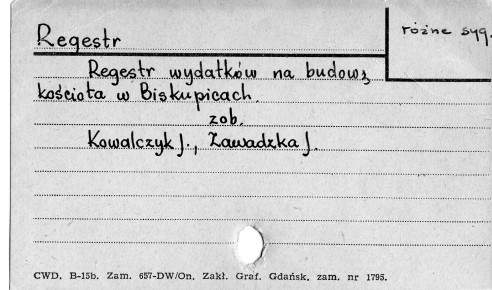 różne syg.
Regestr
Regestr wydatków na budowę
kościoła w Biskupicach.
zob.
Kowalczyk J., Zawadzka J.
CWD. B-15b. Zam. 657-DW/On. Zakł. Graf. Gdańsk, zam. nr 1795.